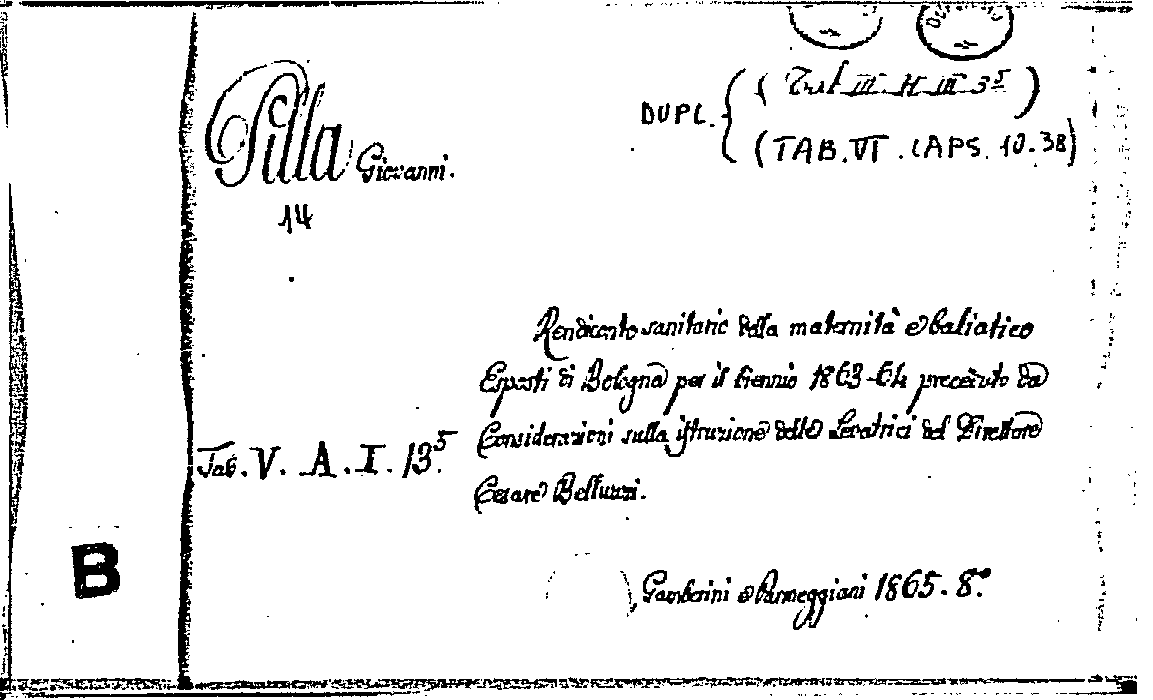 Pilla Giovanni.
14
DUPL. { ( Tab III. H. III 3⁵ )
(TAB. VI. CAPS. 10.38)
Rendiconto sanitario della maternità e baliatico
Esposti di Bologna per il biennio 1863-64 preceduto da
Considerazioni sulla istruzione delle Levatrici del Direttore
Cesare Belluzzi.
Tab. V. A. I. 13⁵.
B
Gamberini e Parmeggiani 1865. 8.°